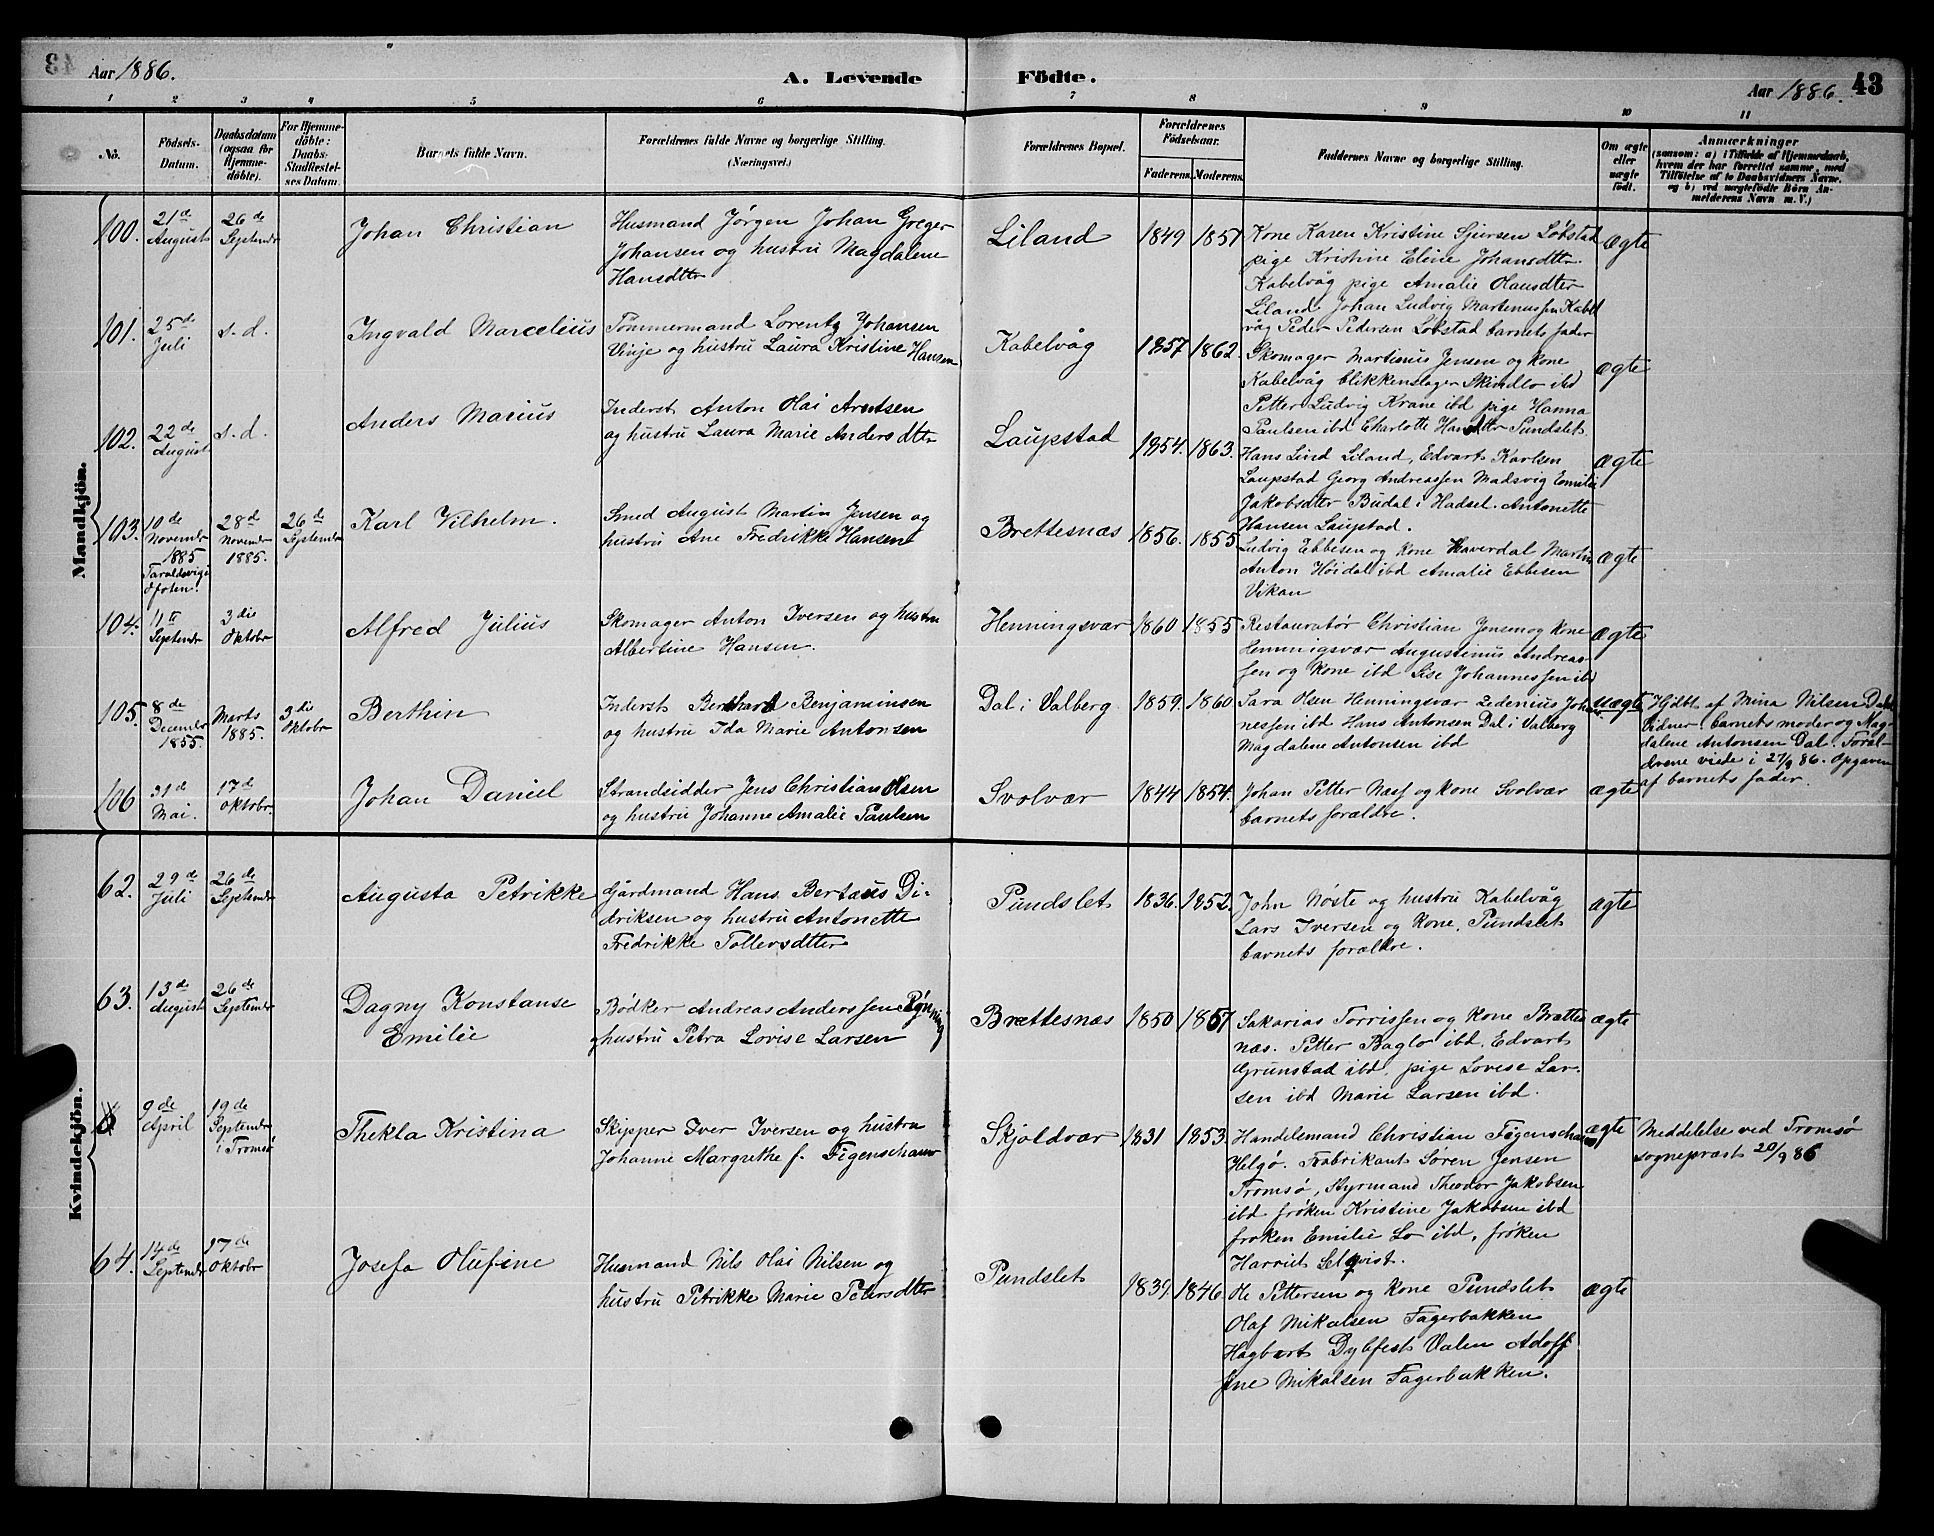 43
Aar 1886.
A. Levende Födte.
Aar 1886.
43
1 2 3 4 5 6 7 8 9 10 11
No.
Födsels-
Datum.
Daabsdatum
(ogsaa for
Hjemme-
döbte).
For Hjemme-
döbte:
Daabs-
Stadfæstel-
ses Datum.
Barnets fulde Navn.
Forældrenes fulde Navne og borgerlige Stilling.
(Næringsvei.)
Forældrenes Bopæl.
Forældrenes
Födselsaar.
Faderens. Moderens.
Faddernes Navne og borgerlige Stilling.
Om ægte
eller
uægte
födt.
Anmærkninger
(saasom: a) i Tilfælde af Hjemmedaab,
hvem der har forrettet samme, med
Tilföielse af to Daabsvidners Navne.
og b) ved uægtefödte Börn An-
melderens Navn m. V.)
Mandkjön.
100.
21de
August
26de
Septembr
Johan Christian
Husmand Jørgen Johan Greger
Johansen og hustru Magdalene
Hansdtr
Liland
1849
1857
Kone Karen Kristine Sjursen Løkstad
pige Kristine Eline Johansdtr
Kabelvåg pige Amalie Hansdtr
Liland. Johan Ludvig Martenussen Kabel
våg Peder Pedersen Løkstad barnets fader
ægte
101.
25de
Juli
s. d.
Ingvald Marcelius
Tømmermand Lorentz Johansen
Vinje og hustru Laura Kristine Hansen
Kabelvåg
1857
1862
Skomager Martinus Jensen og kone
Kabelvåg blikkenslager Skindlo ibd
Petter Ludvig Krane ibd pige Hanna
Paulsen ibd Charlotte Hansdtr Pundslet.
ægte
102.
22de
August
s. d.
Anders Marius
Inderst Anton Olai Arntsen
og hustru Laura Marie Andersdtr
Laupstad
1854.
1863.
Hans Lind Liland, Edvart Karlsen
Laupstad Georg Andreassen Madsvig Emilie
Jakobsdtr Budal i Hadsel. Antonette
Hansen Laupstad.
ægte
103.
10de
Novembr
1885
Taraldsvig i
Ofoten.
28de
Novembr
1885.
26de
Septembr
Karl Vilhelm.
Smed August Martin Jensen og
hustru Ane Fredrikke Hansen
Brettesnæs
1856.
1855
Ludvig Ebbesen og kone Haverdal Martin
Anton Høidal ibd Amalie Ebbesen
Vikan
ægte
104.
11te
Septembr
3die
Oktobr
Alfred Julius
Skomager Anton Iversen og hustru
Albertine Hansen.
Henningsvær
1860
1855
Restauratør Christian Jensen og kone
Henningsvær Augustinus Andreas-
sen og kone ibd Lise Johannessen ibd
ægte
105.
8de
Decembr
1855.
Marts
1885.
3die
Oktobr
Berthin
Inderst Bernhard Benjaminsen
og hustru Ida Marie Antonsen
Dal i Valberg
1859.
1860
Sara Olsen Henningsvær Zedenius Johan-
nessen ibd Hans Antonsen Dal i Valberg
Magdalene Antonsen ibd
uægte
Hjdbt af Mina Nilsen Dal
Vidner: barnets moder og Mag-
dalene Antonsen Dal. Foræl-
drene viede i 27/9 86. Opgaven
af barnets fader.
106
31de
Mai.
17de
Oktobr.
Johan Daniel
Strandsidder Jens Christian Olsen
og hustru Johanne Amalie Paulsen
Svolvær
1844
1854.
Johan Petter Næss og kone Svolvær
barnets forældre.
ægte
Kvindekjön.
62.
29de
Juli
26de
Septembr
Augusta Petrikke
Gårdmand Hans Berteus Di-
driksen og hustru Antonette
Fredrikke Tollevsdtr
Pundslet
1836.
1852.
John Nøste og hustru Kabelvåg
Lars Iversen og kone, Pundslet
barnets forældre.
ægte
63.
13de
August
26de
Septembr
Dagny Konstanse
Emilie
Bødker Andreas Anderssen Rønning
og hustru Petra Lovise Larsen
Brettesnæs
1850
1857
Sakarias Torrissen og kone Brettes
næs. Petter Baglo ibd. Edvart
Grunstad ibd. pige Lovise Lar-
sen ibd Marie Larsen ibd.
ægte
9de
April
19de
Septembr
i Tromsø
Thekla Kristina
Skipper Iver Iversen og hustru
Johanne Margrethe f. Figenschauw
Skjoldvær
1831
1853.
Handelsmand Christian Figenschauw
Helgø. Fabrikant Søren Jensen
Tromsø, Styrmand Theodor Jakobsen
ibd frøken Kristine Jakobsen ibd
frøken Emilie Lo ibd, frøken
Harriet Selqvist.
ægte
Meddelelse ved Tromsø
sognepræst 20/9 86
64.
14de
Septembr
17de
Oktobr
Josefa Olufine
Husmand Nils Olai Nilsen og
hustru Petrikke Marie Pedersdtr
Pundslet
1839.
1846.
Ole Pettersen og kone Pundslet
Olaf Mikalsen Fagerbakken
Hagbart Dybfest Valen Adolf
fine Mikalsen Fagerbakken.
ægte